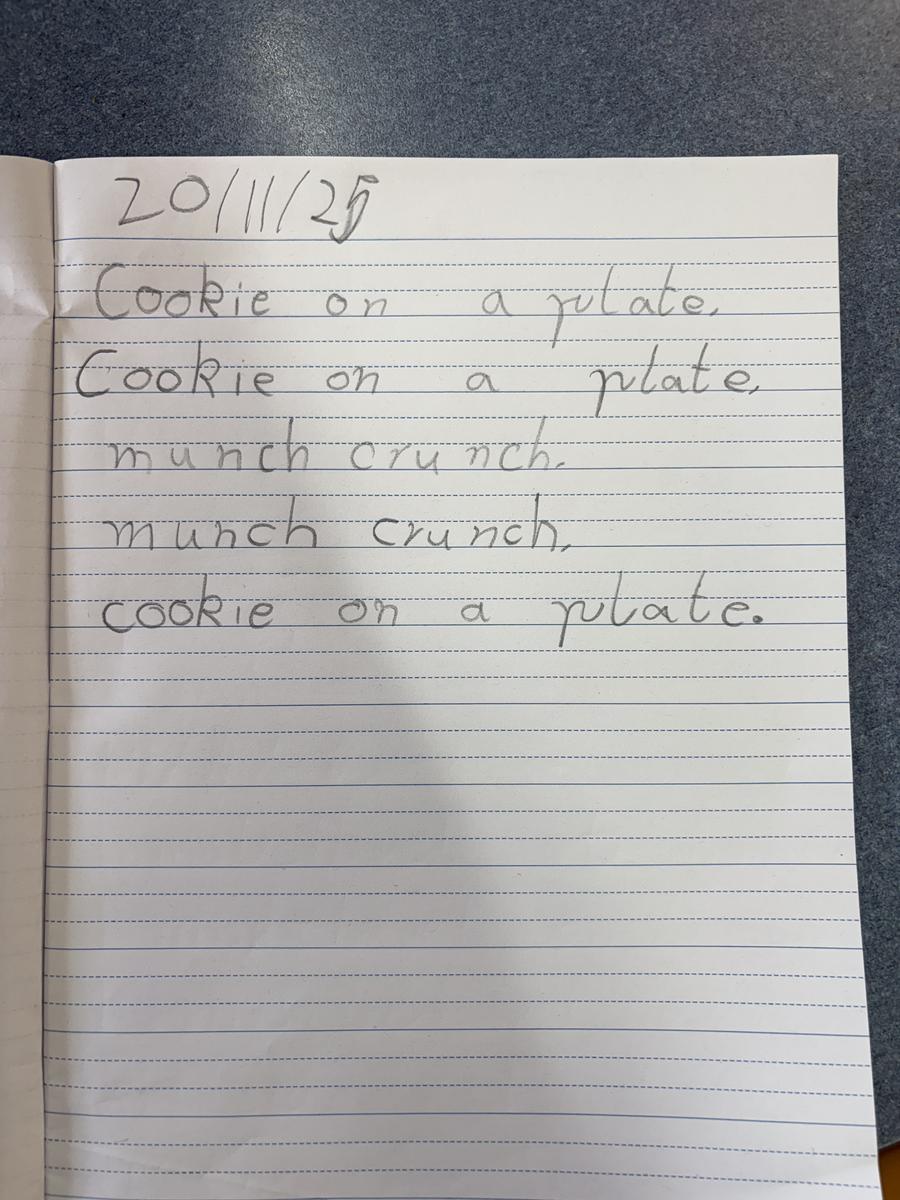 20/11/25
Cookie on a plate,
Cookie on a plate,
munch crunch.
munch crunch,
cookie on a plate.